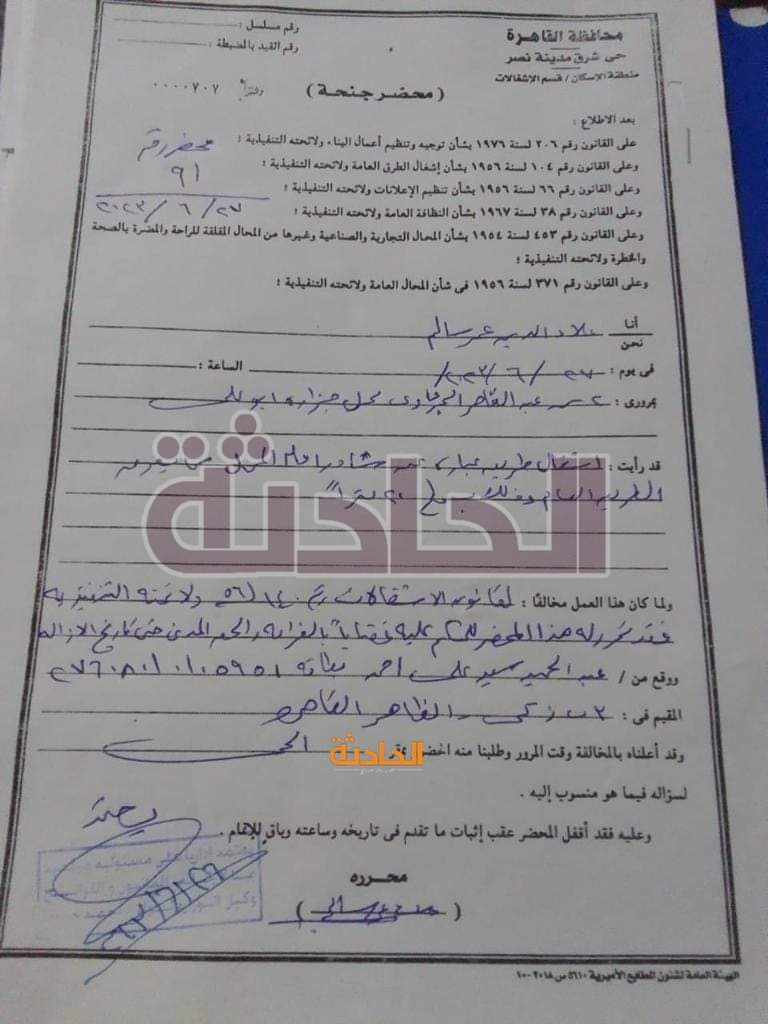 محافظة القاهرة
حى شرق مدينة نصر
منطقة الإسكان / قسم الإشغالات
رقم مسلسل :
رقم القيد بالمضبطة :
( محضر جنحة )
٠٠٠٠٧٠٧
بعد الاطلاع :
على القانون رقم ٢٠٦ لسنة ١٩٧٦ بشأن توجيه وتنظيم أعمال البناء ولائحته التنفيذية ؛
وعلى القانون رقم ١٠٤ لسنة ١٩٥٦ بشأن إشغال الطرق العامة ولائحته التنفيذية ؛
وعلى القانون رقم ٦٦ لسنة ١٩٥٦ بشأن تنظيم الإعلانات ولائحته التنفيذية ؛
وعلى القانون رقم ٣٨ لسنة ١٩٦٧ بشأن النظافة العامة ولائحته التنفيذية ؛
محضر رقم
٩١
٢٧ / ٦ / ٢٠٢٣
وعلى القانون رقم ٤٥٣ لسنة ١٩٥٤ بشأن المحال التجارية والصناعية وغيرها من المحال المقلقة للراحة والمضرة بالصحة
والخطرة ولائحته التنفيذية ؛
وعلى القانون رقم ٣٧١ لسنة ١٩٥٦ فى شأن المحال العامة ولائحته التنفيذية ؛
أنا
نحن
علاء الدين عمر سالم
فى يوم : ٢٧ / ٦ / ٢٠٢٣ الساعة :
بمرورى : ٢ ش عبد القاهر الجرجاوى محل جزاره ابو على
قد رأيت : اشغال طريق عباره عن امام المحل
الطريق العام وذلك ٢٠ متراً
الحادثة
ولما كان هذا العمل مخالفًا : لقانون الاشغالات رقم ١٤٠ / ٥٦ ولائحته التنفيذيه
فقد تحرر له هذا المحضر بالغرامه حتى تاريخ الازاله
ووقع من / عبد الحميد سيد على احمد بطاقه
المقيم فى : ٣ ش زكى الظاهر القاهره
وقد أعلناه بالمخالفة وقت المرور وطلبنا منه الحضور الحى
الحادثة
لسؤاله فيما هو منسوب إليه .
وعليه فقد أقفل المحضر عقب إثبات ما تقدم فى تاريخه وساعته وباق للإتمام .
يعتمد
محرره
الهيئة العامة لشئون المطابع الأميرية ٥٦١٠ س ٢٠١٨ - ١٠٠